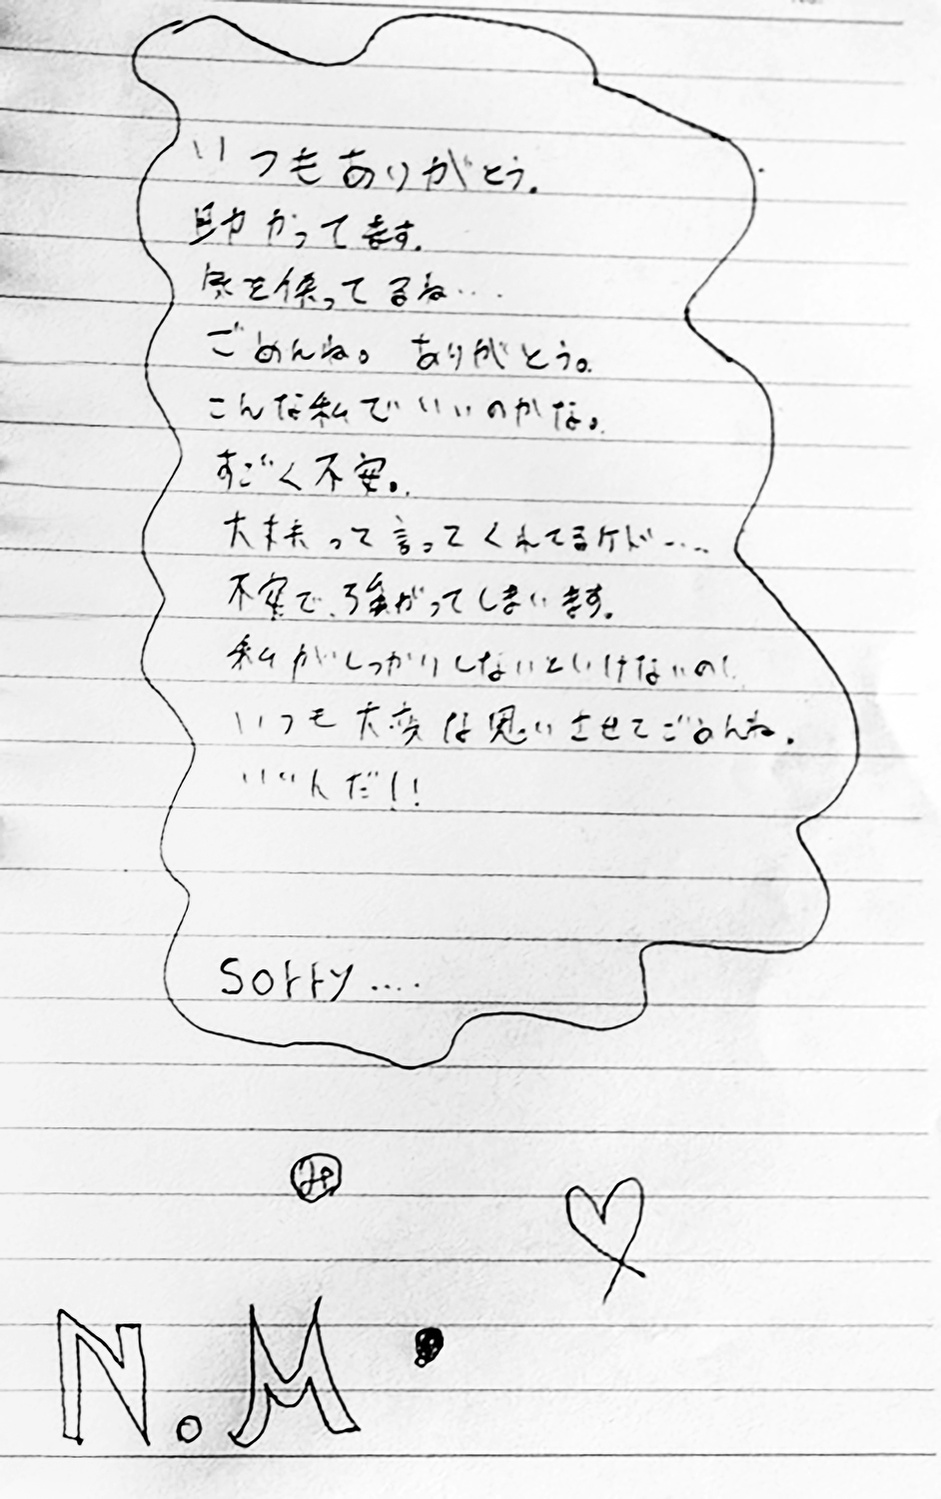 いつもありがとう。
助かってます。
気を係ってるね...
ごめんね。 ありがとう。
こんな私でいいのかな。
すごく不安。
大丈夫って言ってくれてるケド....
不安で、強がってしまいます。
私がしっかりしないといけないのに
いつも大変な思いさせてごめんね。
いいんだ!!
Sorry....
み
N.M